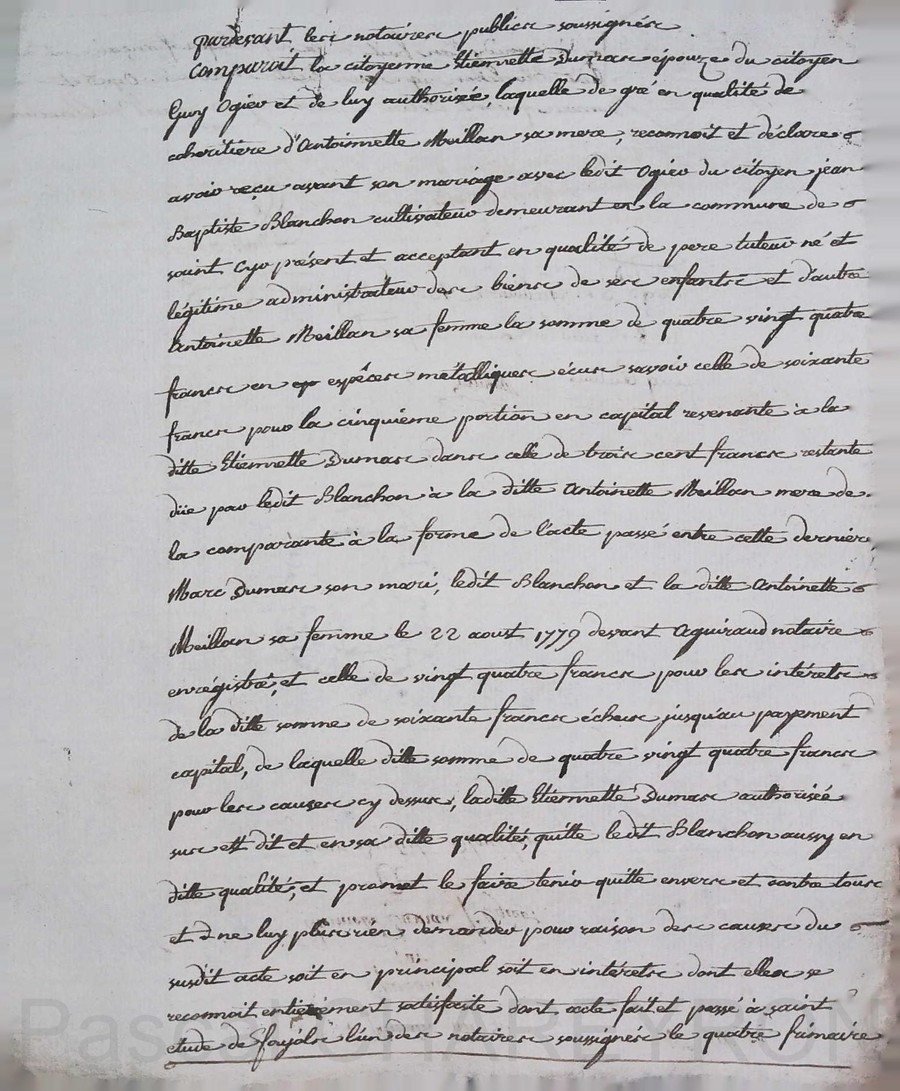 pardevant les notaires publics soussignés
comparoit la citoyenne Etiennette Dumas épouze du citoyen
Guy Ogier et de luy authorisée, laquelle de gré en qualité de
coheritiére d'Antoinnette Meillan sa mere, reconnoit et déclare
avoir reçu avant son mariage avec ledit Ogier du citoyen jean
Baptiste Blanchon cultivateur demeurant en la commune de
saint Cyr présent et acceptant en qualité de pere tuteur né et
légitime administrateur des biens de ses enfants et d'autre
Antoinette Meillan sa femme la somme de quatre vingt quatre
francs en espéces métalliques écus savoir celle de soixante
francs pour la cinquiéme portion en capital revenante à la
ditte Etiennette Dumas dans celle de trois cent francs restante
düe par ledit Blanchon à la ditte Antoinette Meillan mere de
la comparante à la forme de l'acte passé entre cette derniere,
Marc Dumas son mari, ledit Blanchon et la ditte Antoinette
Meillan sa femme le 22 aoust 1779 devant Aguiraud notaire
enrégistré, et celle de vingt quatre francs pour les intérets
de la ditte somme de soixante francs échus jusqu'au payement
capital, de laquelle ditte somme de quatre vingt quatre francs
pour les causes cy dessus, ladite Etiennette Dumas authorisée
sus est dit et en sa ditte qualité, quitte ledit Blanchon aussy en
ditte qualité, et promet le faire tenir quitte envers et contre tous
et d ne luy plus rien demander pour raison des causes du
susdit acte soit en principal soit en intérets dont elle se
reconnoit entierement satisfaite dont acte fait et passé à saint
etude de foujols l'un des notaires soussignés le quatre frimaire